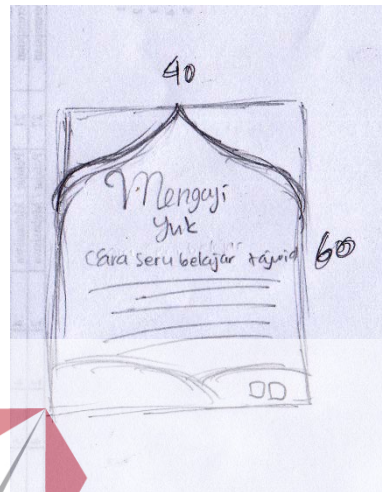 40
Mengaji
Yuk
Cara seru belajar tajwid
60